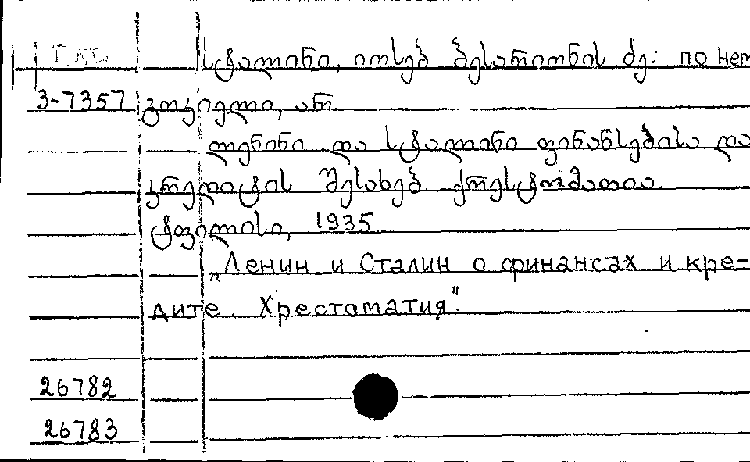 სტალინი, იოსებ ბესარიონის ძე: по нет
3-7357
ლენინი და სტალინი ფინანსებისა და
კრედიტის შესახებ. ქრესტომათია.
ტფილისი, 1935
„Ленин и Сталин о финансах и кре-
дите. Хрестоматия".
26782
26783